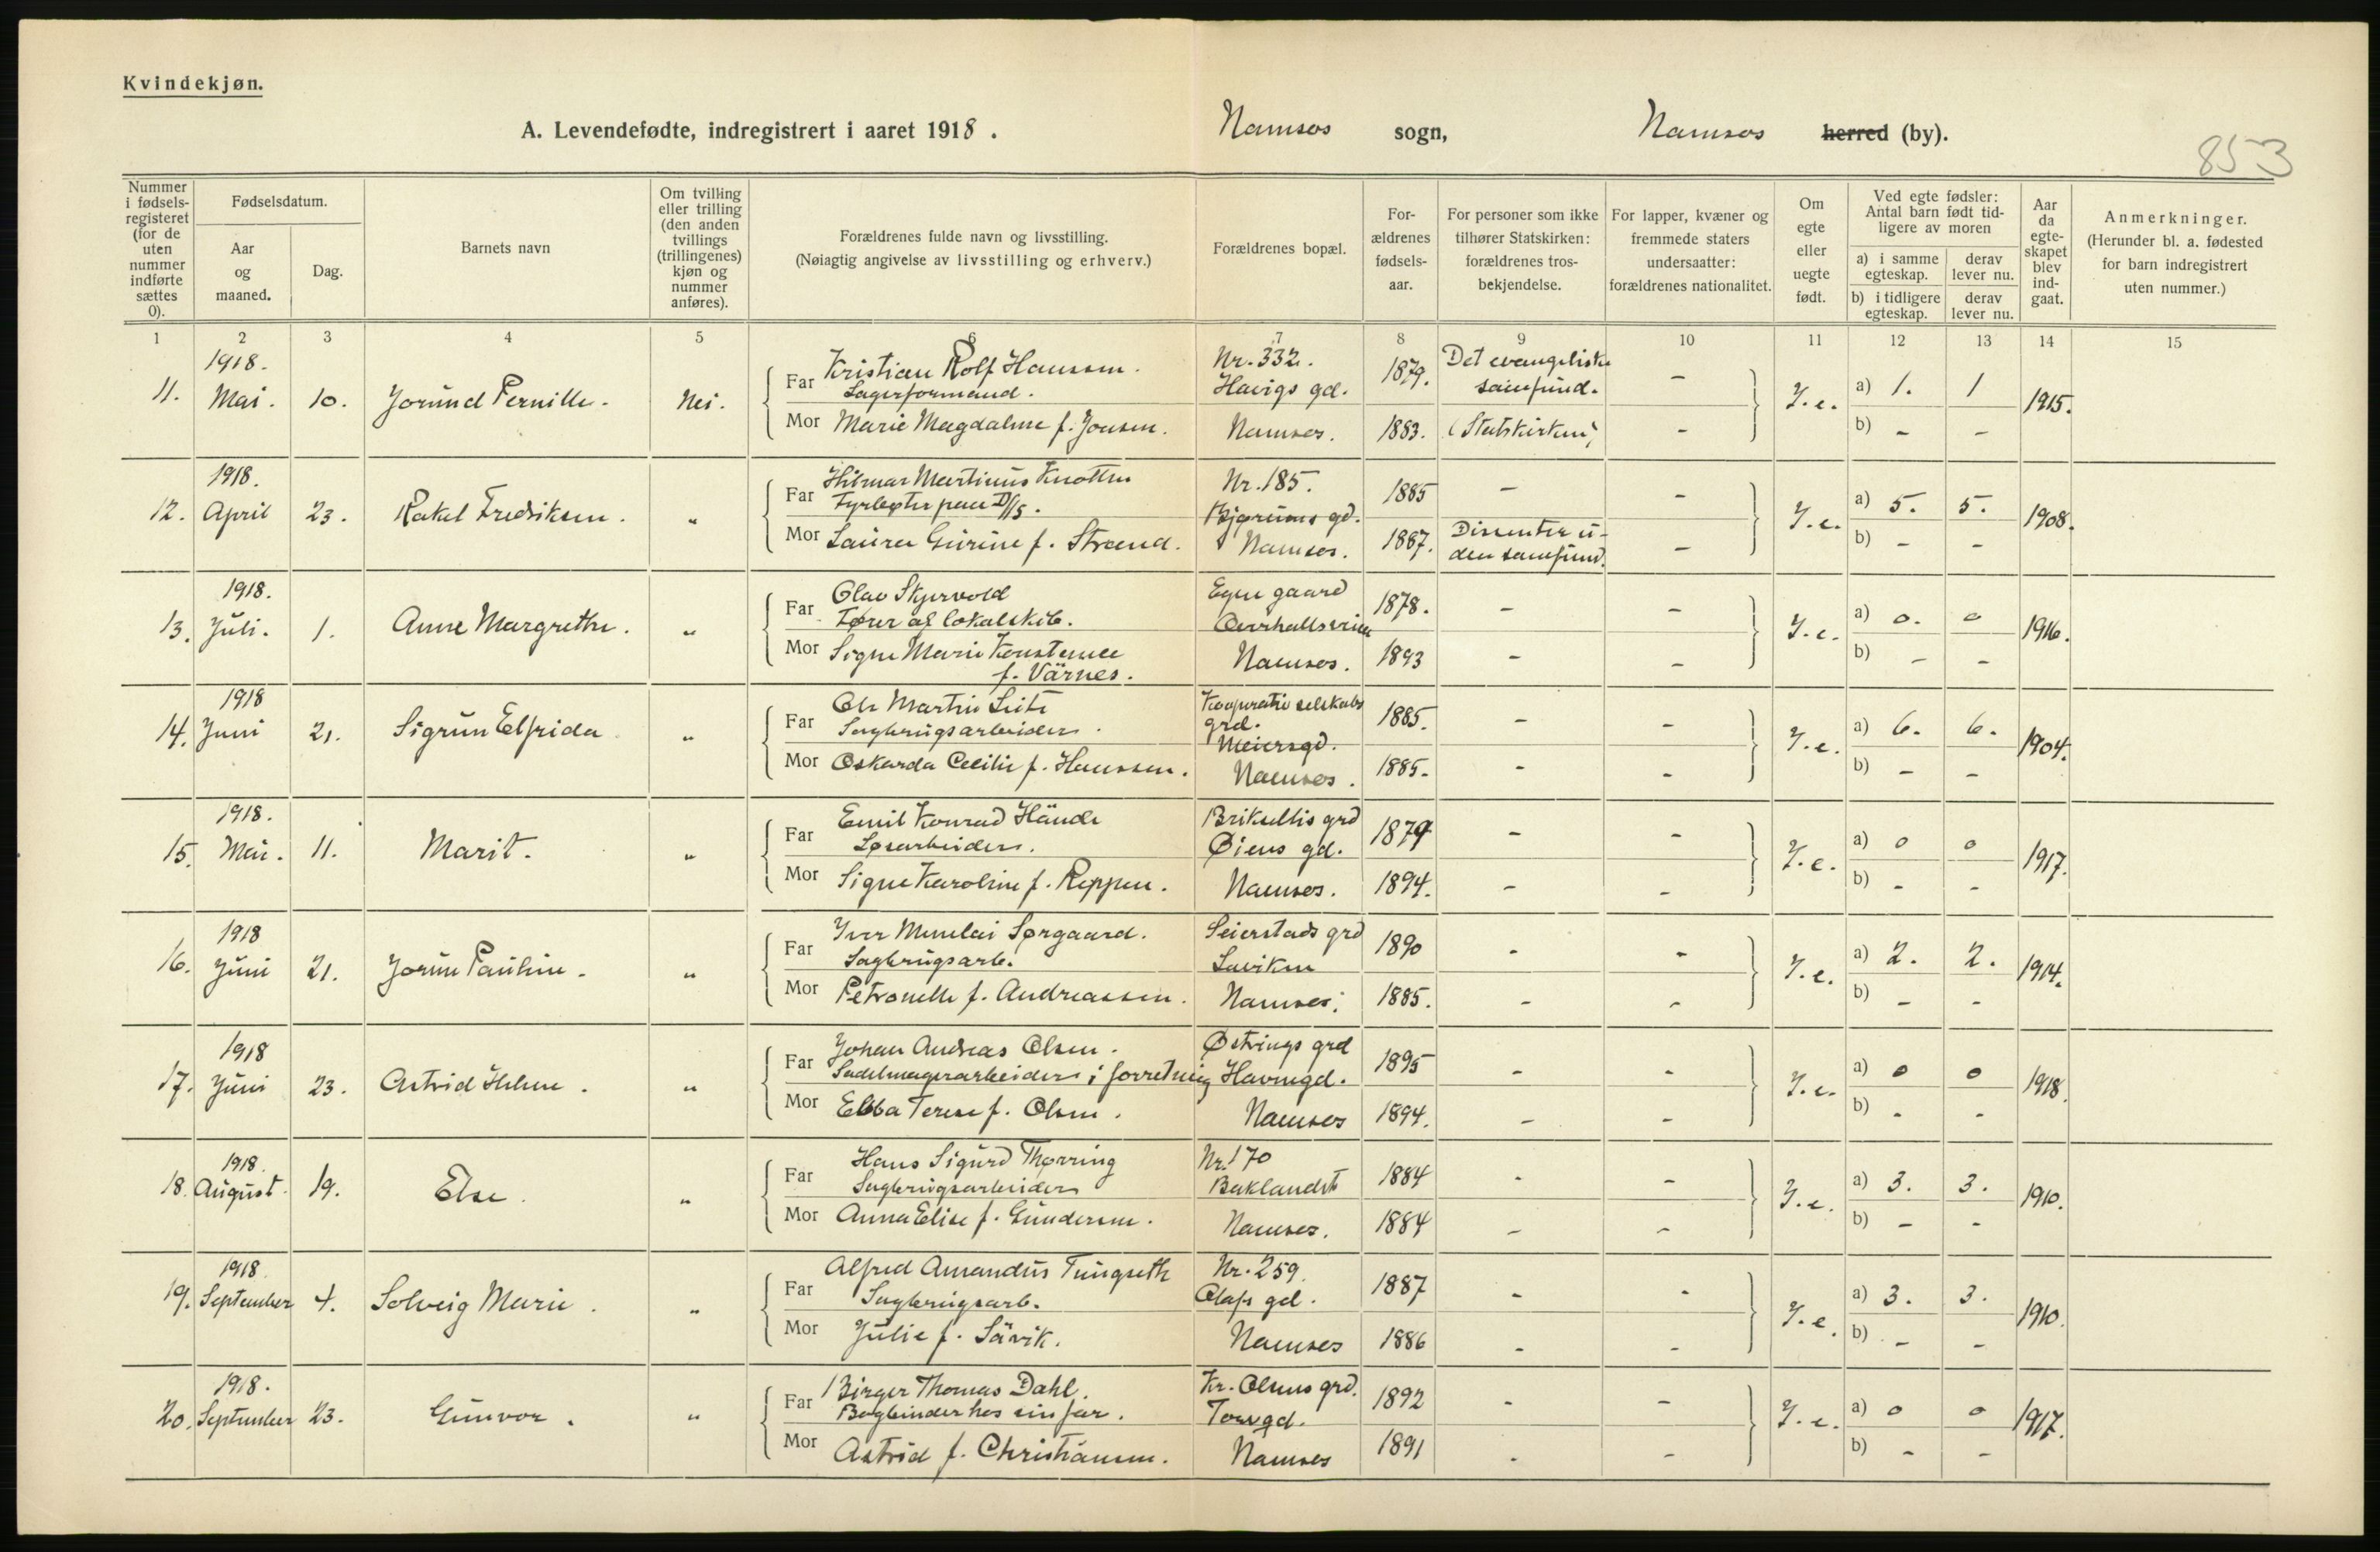 Kvindekjøn.
A. Levendefødte, indregistrert i aaret 1918. Namsos sogn, Namsos herred (by).
853
Nummer i fødselsregisteret (for de uten nummer indførte sættes 0).
Fødselsdatum.
Aar og maaned.
Dag.
Barnets navn
Om tvilling eller trilling (den anden tvillings (trillingenes) kjøn og nummer anføres).
Forældrenes fulde navn og livsstilling.
(Nøiagtig angivelse av livsstilling og erhverv.)
Forældrenes bopæl.
Forældrenes fødselsaar.
For personer som ikke tilhører Statskirken: forældrenes trosbekjendelse.
For lapper, kvæner og fremmede staters undersaatter: forældrenes nationalitet.
Om egte eller uegte født.
Ved egte fødsler: Antal barn født tidligere av moren
a) i samme egteskap. derav lever nu.
b) i tidligere egteskap. derav lever nu.
Aar da egteskapet blev indgaat.
Anmerkninger.
(Herunder bl. a. fødested for barn indregistrert uten nummer.)
1 2 3 4 5 6 7 8 9 10 11 12 13 14 15
11. 1918. Mai. 10. Jorund Pernille. Nei.
Far Kristian Rolf Hanssen. Nr. 332. 1879. Det evangeliske samfund. -
Lagerformand. Havigs gd.
Mor Marie Magdalene f. Jensen. Namsos. 1883. (Statskirken) -
I.e. a) 1. 1 b) - - 1915.
12. 1918. April 23. Rakel Fredriksen. "
Far Hilmar Martinus Knotten Nr. 185. 1885 - -
Fyrbøter paa D/S. Bjørums gd.
Mor Laura Gurine f. Strand. Namsos. 1887. Dissenter uden samfund. -
I.e. a) 5. 5. b) - - 1908.
13. 1918. Juli. 1. Anne Margrethe. "
Far Olav Skjervold Egen gaard 1878. - -
Fører af lokalskib. Overhallsveien
Mor Signe Marie Konstance f. Värnes. Namsos. 1893 - -
I.e. a) 0. 0 b) - - 1916.
14. 1918 Juni 21. Sigrun Elfrida "
Far Ole Martin Seite Kooperativ selskabs grd. 1885. - -
Sagbrugsarbeider. Meiergd.
Mor Oskarda Cecilie f. Hanssen. Namsos. 1885. - -
I.e. a) 6. 6. b) - - 1904.
15. 1918. Mai. 11. Marit. "
Far Emil Konrad Hände grd 1879 - -
Løsarbeider. Øiens gd.
Mor Signe Karoline f. Reppen. Namsos. 1894. - -
I.e. a) 0 0 b) - - 1917.
16. 1918 Juni 21. Jorun Pauline. "
Far Iver Menelai Sørgaard. Seierstads grd 1890 - -
Sagbrugsarb. Laviken
Mor Petronelle f. Andreassen. Namsos. 1885. - -
I.e. a) 2. 2. b) - - 1914.
17. 1918 Juni 23. Astrid Helene. "
Far Johan Andreas Olsen. Østvings grd 1895 - -
Sadelmagerarbeider i forretning Havnegd.
Mor Ebba Terese f. Olsen. Namsos 1894. - -
I.e. a) 0 0 b) - - 1918.
18. 1918. August. 19. Else. "
Far Hans Sigurd Thørring Nr. 170 1884 - -
Sagbrugsarbeider Baklandet
Mor Anna Elise f. Gundersen. Namsos. 1884 - -
I.e. a) 3. 3. b) - - 1910.
19. 1918. September 4. Solveig Marie. "
Far Alfred Amandus Tungseth Nr. 259. 1887 - -
Sagbrugsarb. Olafs gd.
Mor Julie f. Sävik. Namsos 1886 - -
I.e. a) 3. 3. b) - - 1910.
20. 1918. September 23. Gunvor. "
Far Birger Thomas Dahl. Kr. Olsens grd. 1892 - -
Bogbinder hos sin far. Torvgd.
Mor Astrid f. Christiansen. Namsos 1891 - -
I.e. a) 0 0 b) - - 1917.